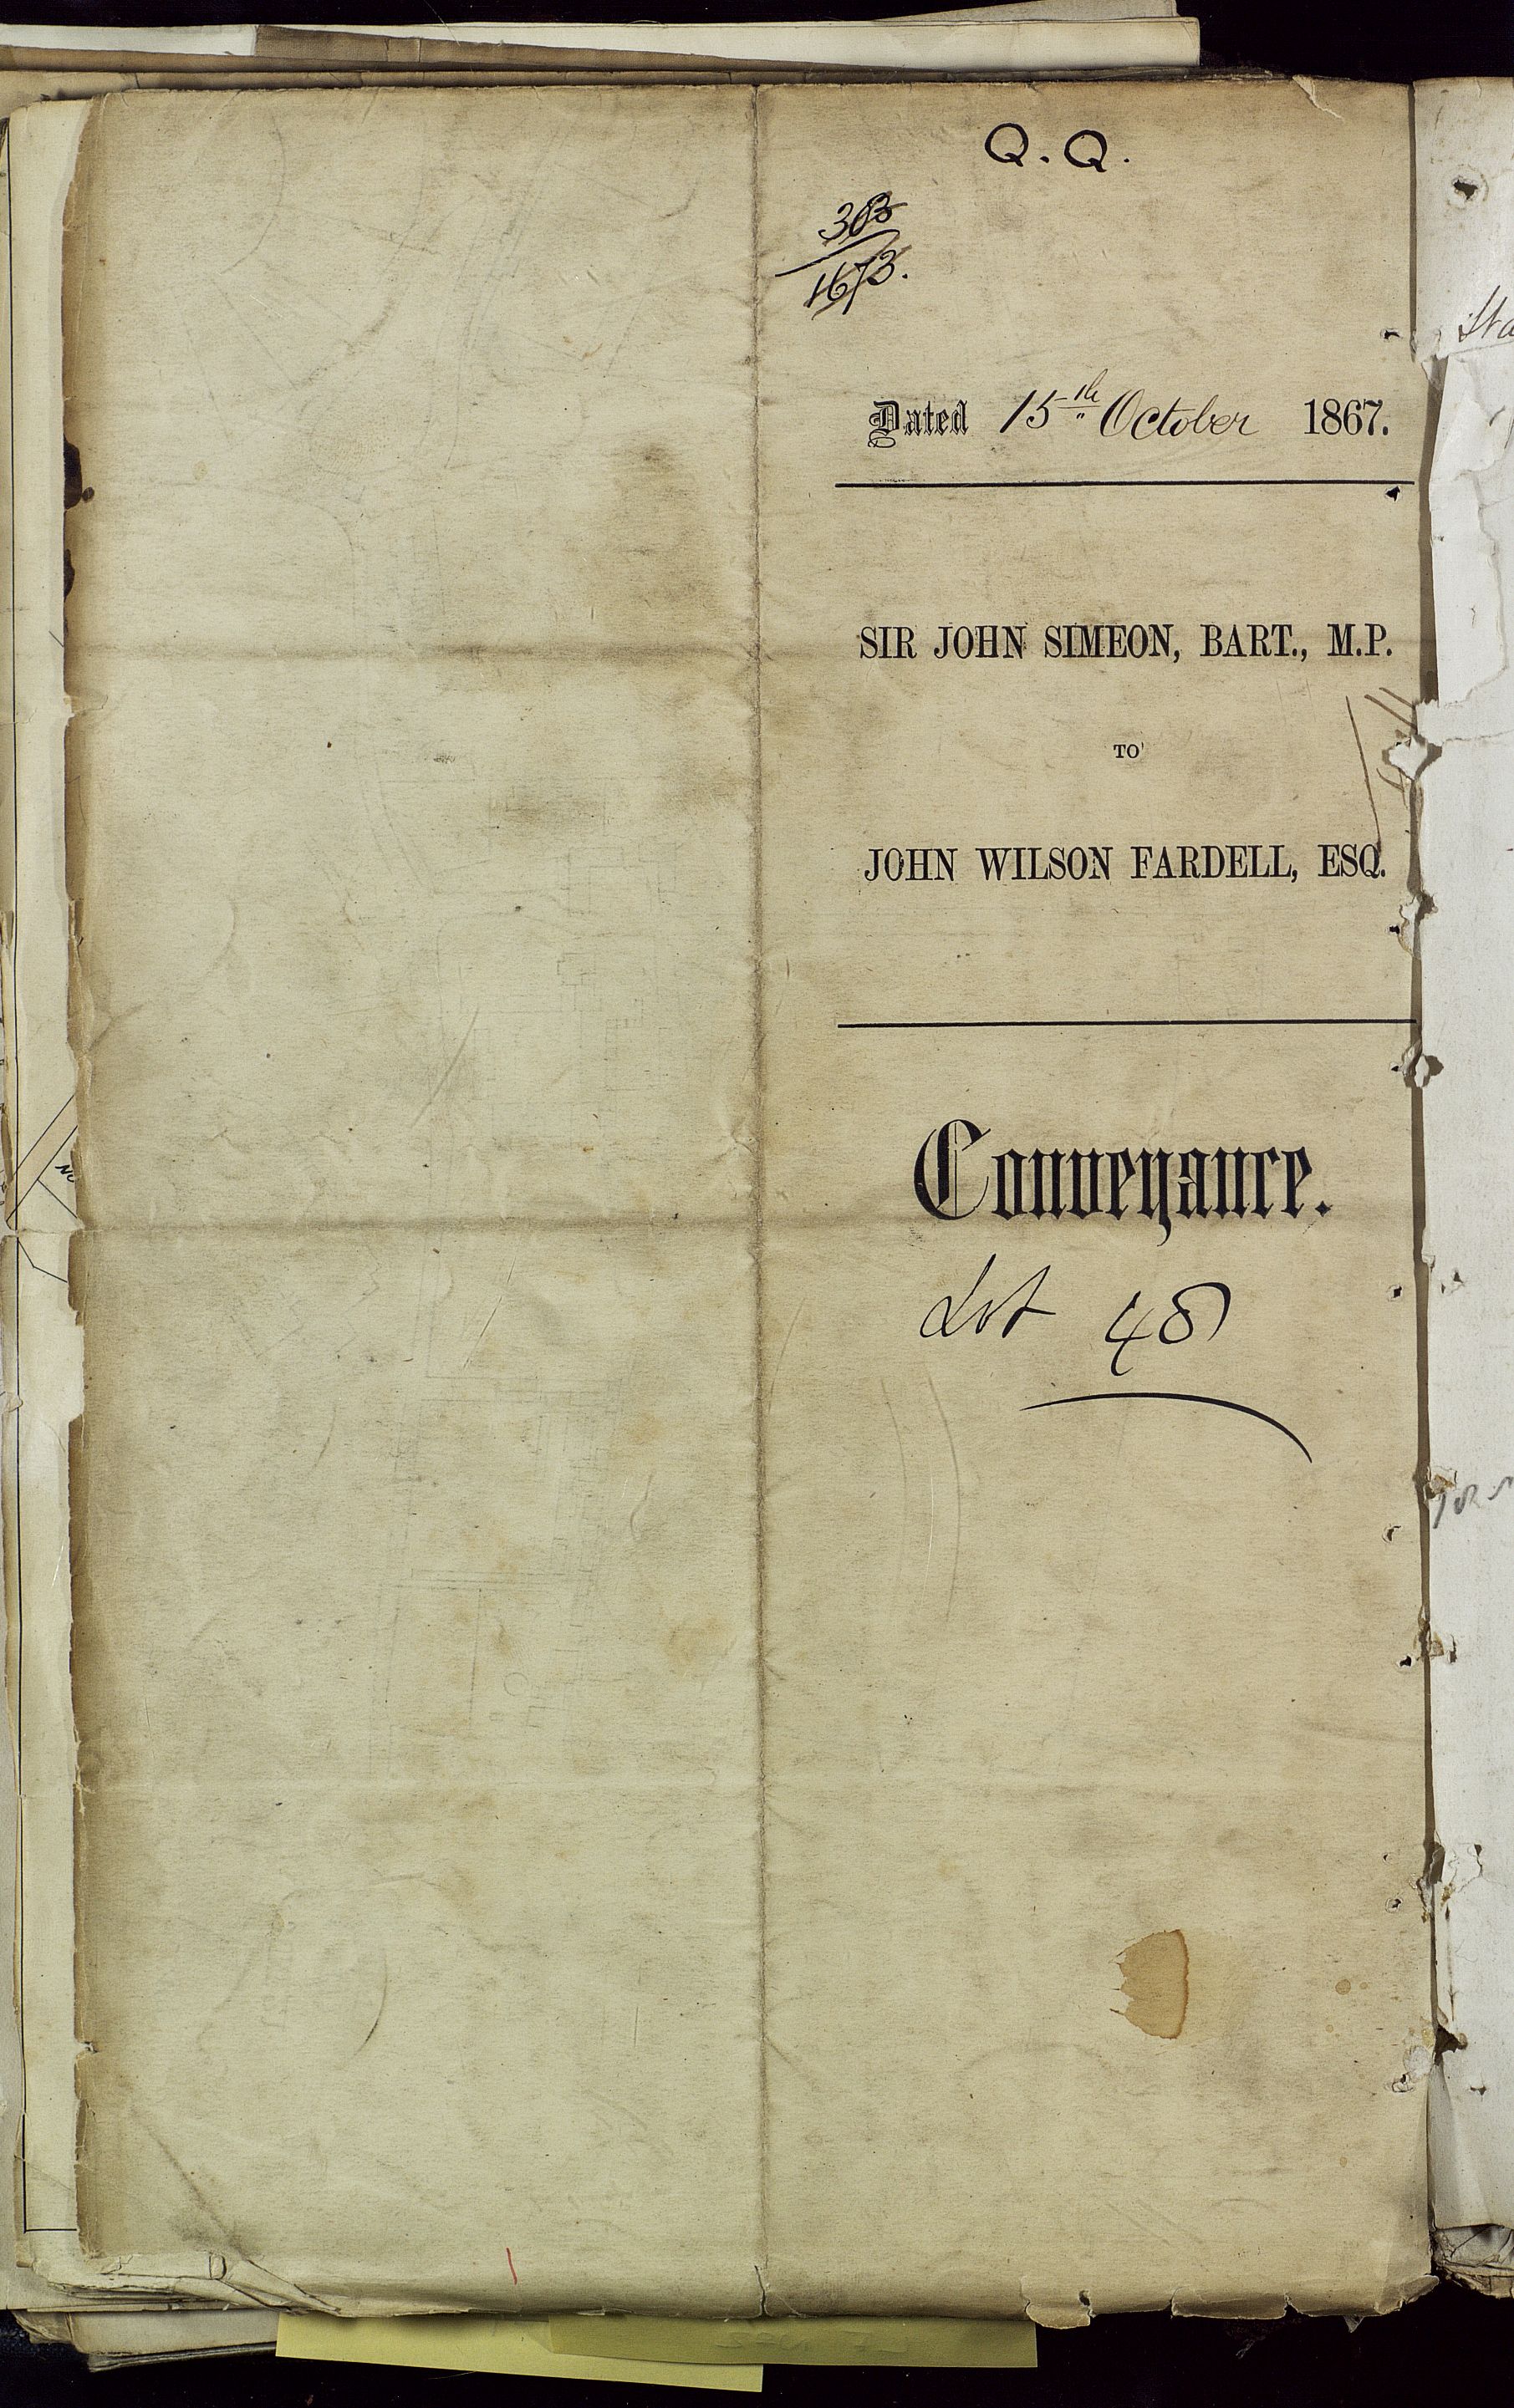 Q. Q.
Dated 15th October 1867.
SIR JOHN SIMEON, BART., M.P.
TO
JOHN WILSON FARDELL, ESQ.
Conveyance.
Lot 48